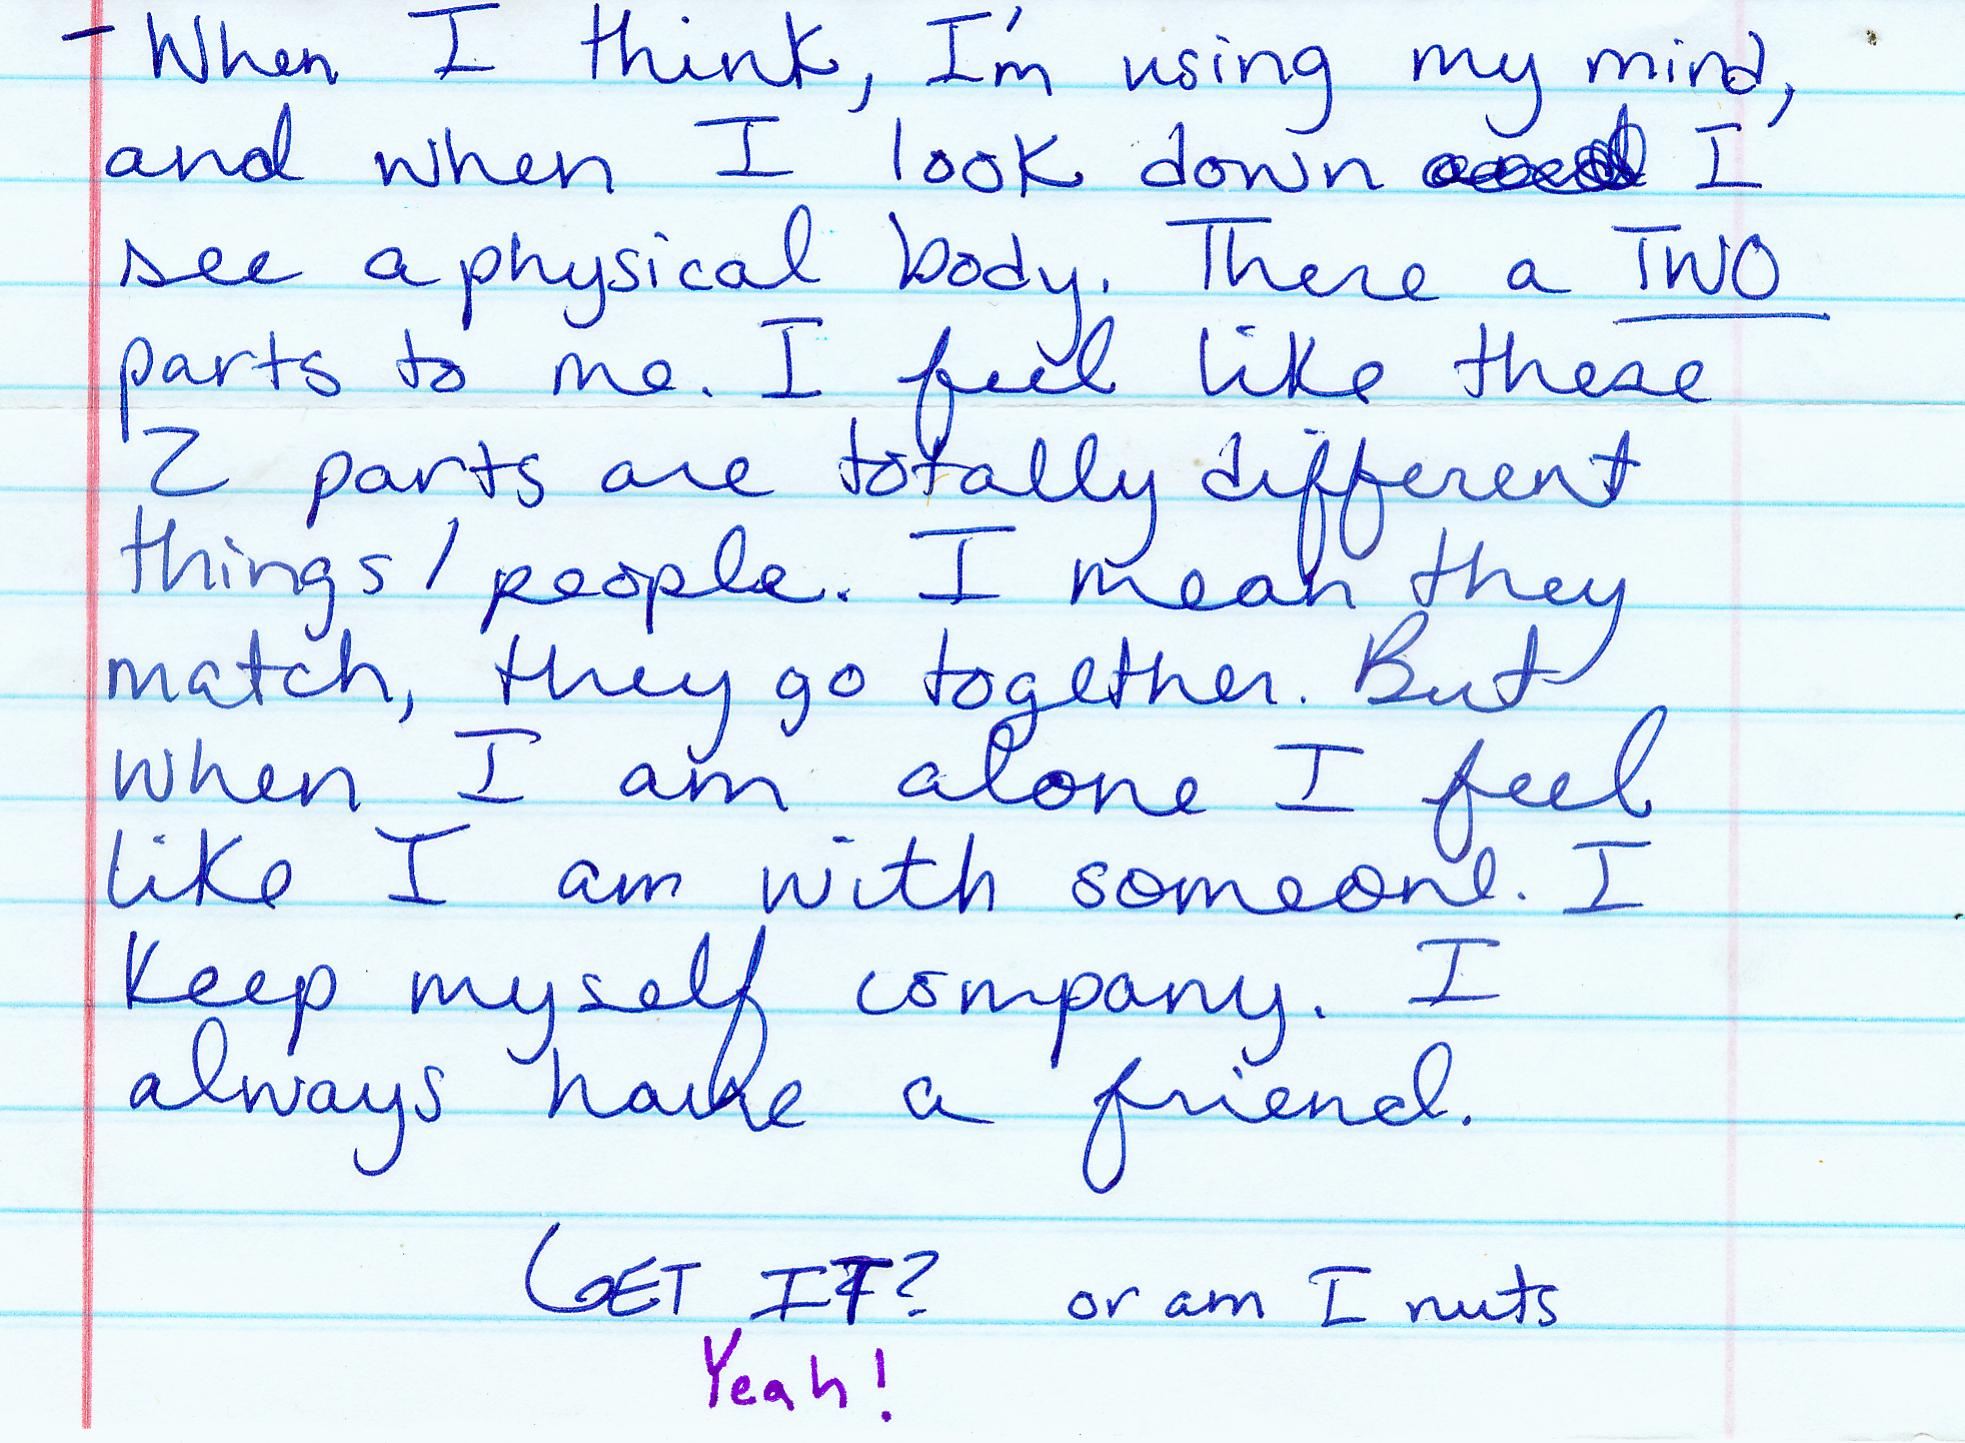 - When I think, I'm using my mind,
and when I look down I
see a physical body. There a TWO
parts to me. I feel like these
2 parts are totally different
things/people. I mean they
match, they go together. But
when I am alone I feel
like I am with someone. I
keep myself company. I
always have a friend.
GET IT? or am I nuts
Yeah!